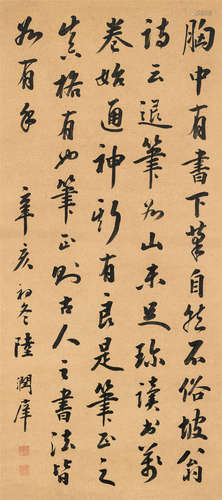 胸中有書下筆自然不俗坡翁
詩云退筆如山未足珍讀書萬
卷始通神斯有良是筆正之
格有筆正則古人之書法皆
如有 辛亥初冬陸潤庠